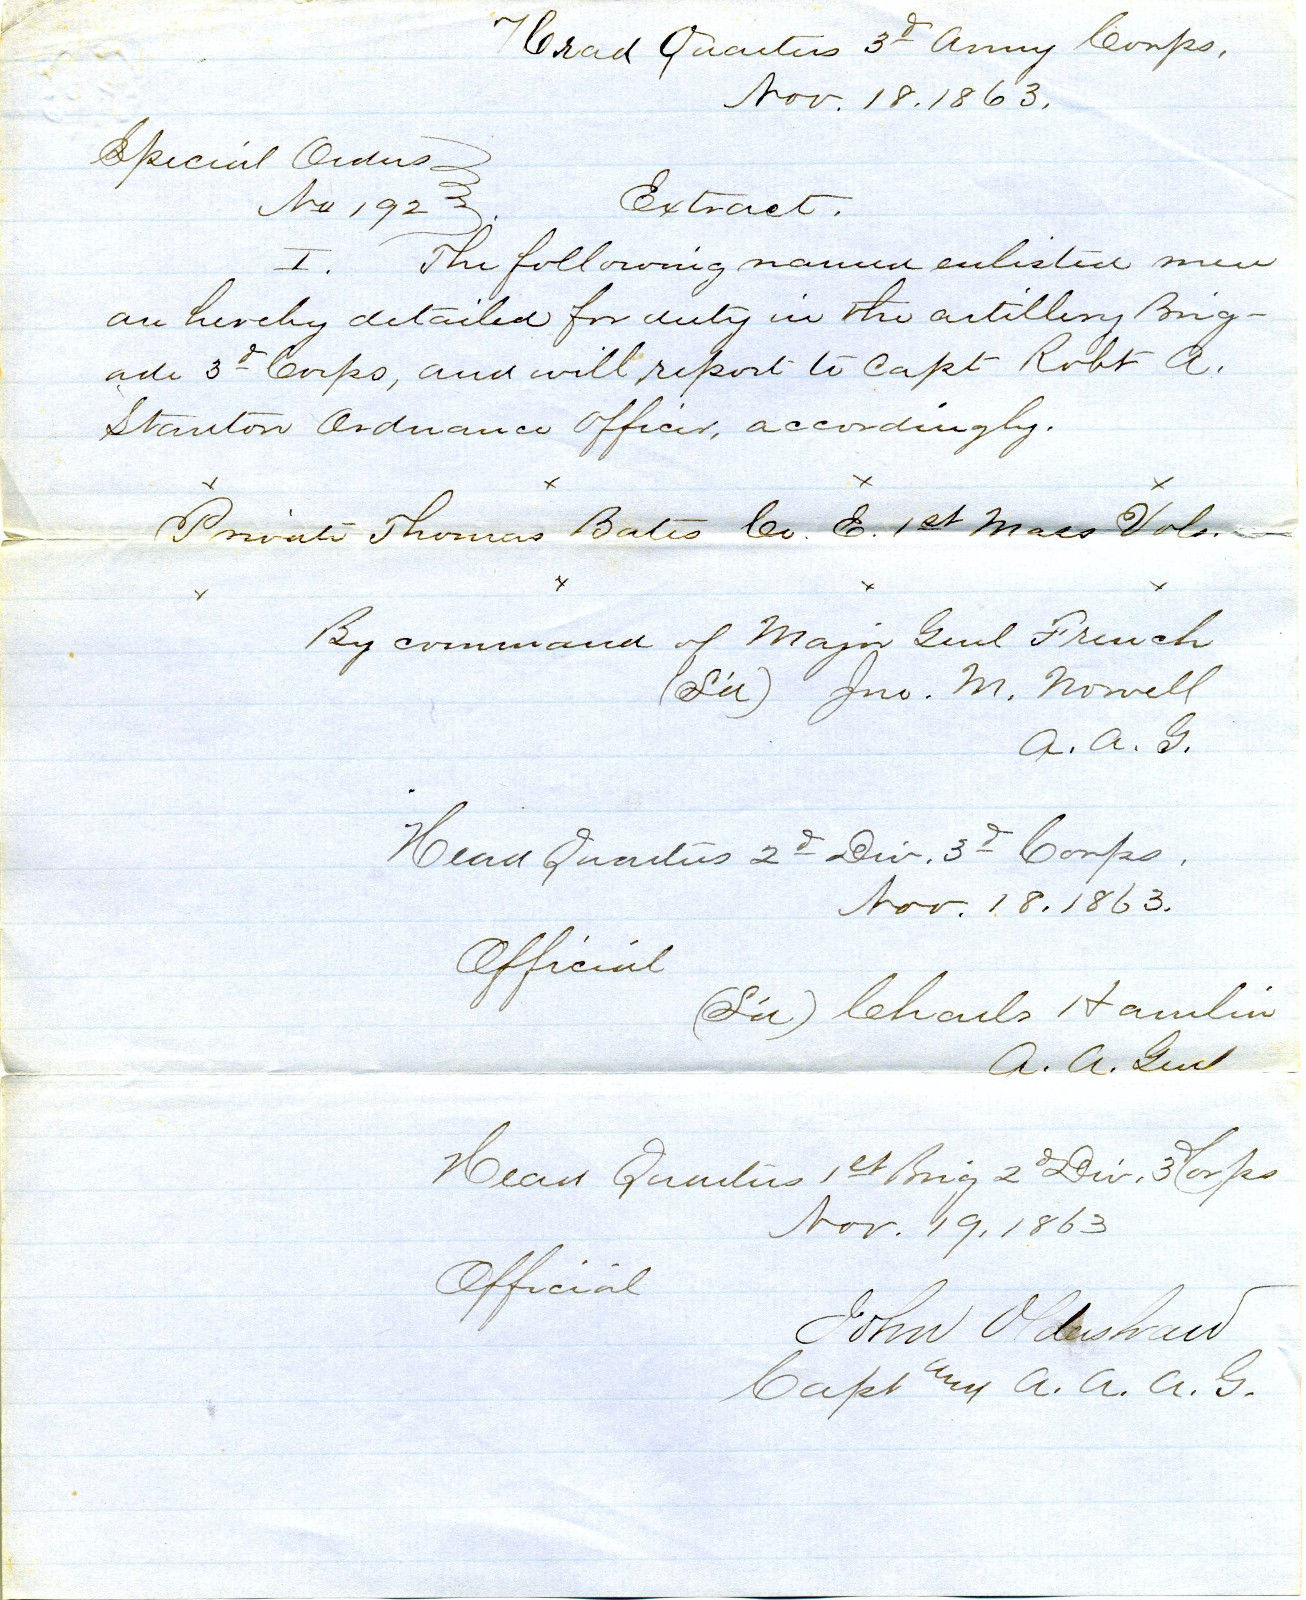 Head Quarters 3d Army Corps,
Nov. 18. 1863.
Special Orders
No 192.
Extract.
I. The following named enlisted men
are hereby detailed for duty in the artillery Brig-
ade 3d Corps, and will report to Capt Robt A.
Stanton Ordnance Officer, accordingly.
x x x x
Private Thomas Bates Co. E. 1st Mass Vols.
x x x x
By command of Major Genl French
(S'd) Jno. M. Norvell
A. A. G.
Head Quarters 2d Div. 3d Corps.
Nov. 18. 1863.
Official
(S'd) Charls Hamlin
A. A. Genl
Head Quarters 1st Brig 2d Div. 3d Corps
Nov. 19. 1863
Official
John Oldershaw
Capt and A. A. A. G.